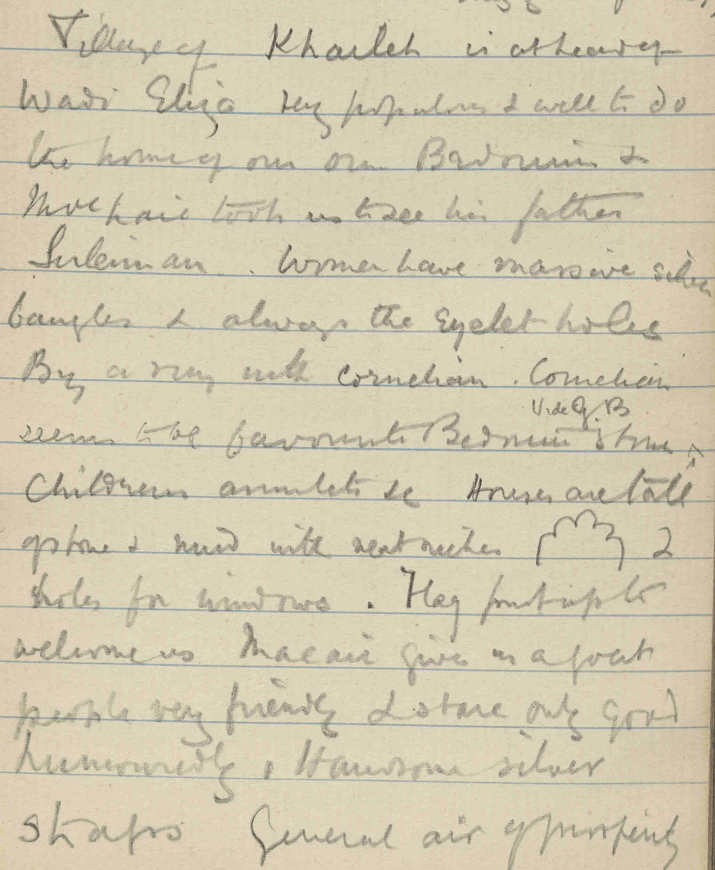 Village of Khaileh is at head of
Wadi Eliza very populous & well to do
the home of our own Bedouin &
took us to see his father
Suleiman. Women have massive silver
bangles & always the Eyelet holes
Big a ring with cornelian. Cornelian
Vide G. B
seems to be favourite Bedouin stone
Childrens amulets &c Houses are tall
of stone & mud with neat niches 2
holes for windows. Flag put up to
welcome us gives us a goat
people very friendly & stare only good
humouredly. Handsome silver
straps General air of prosperity